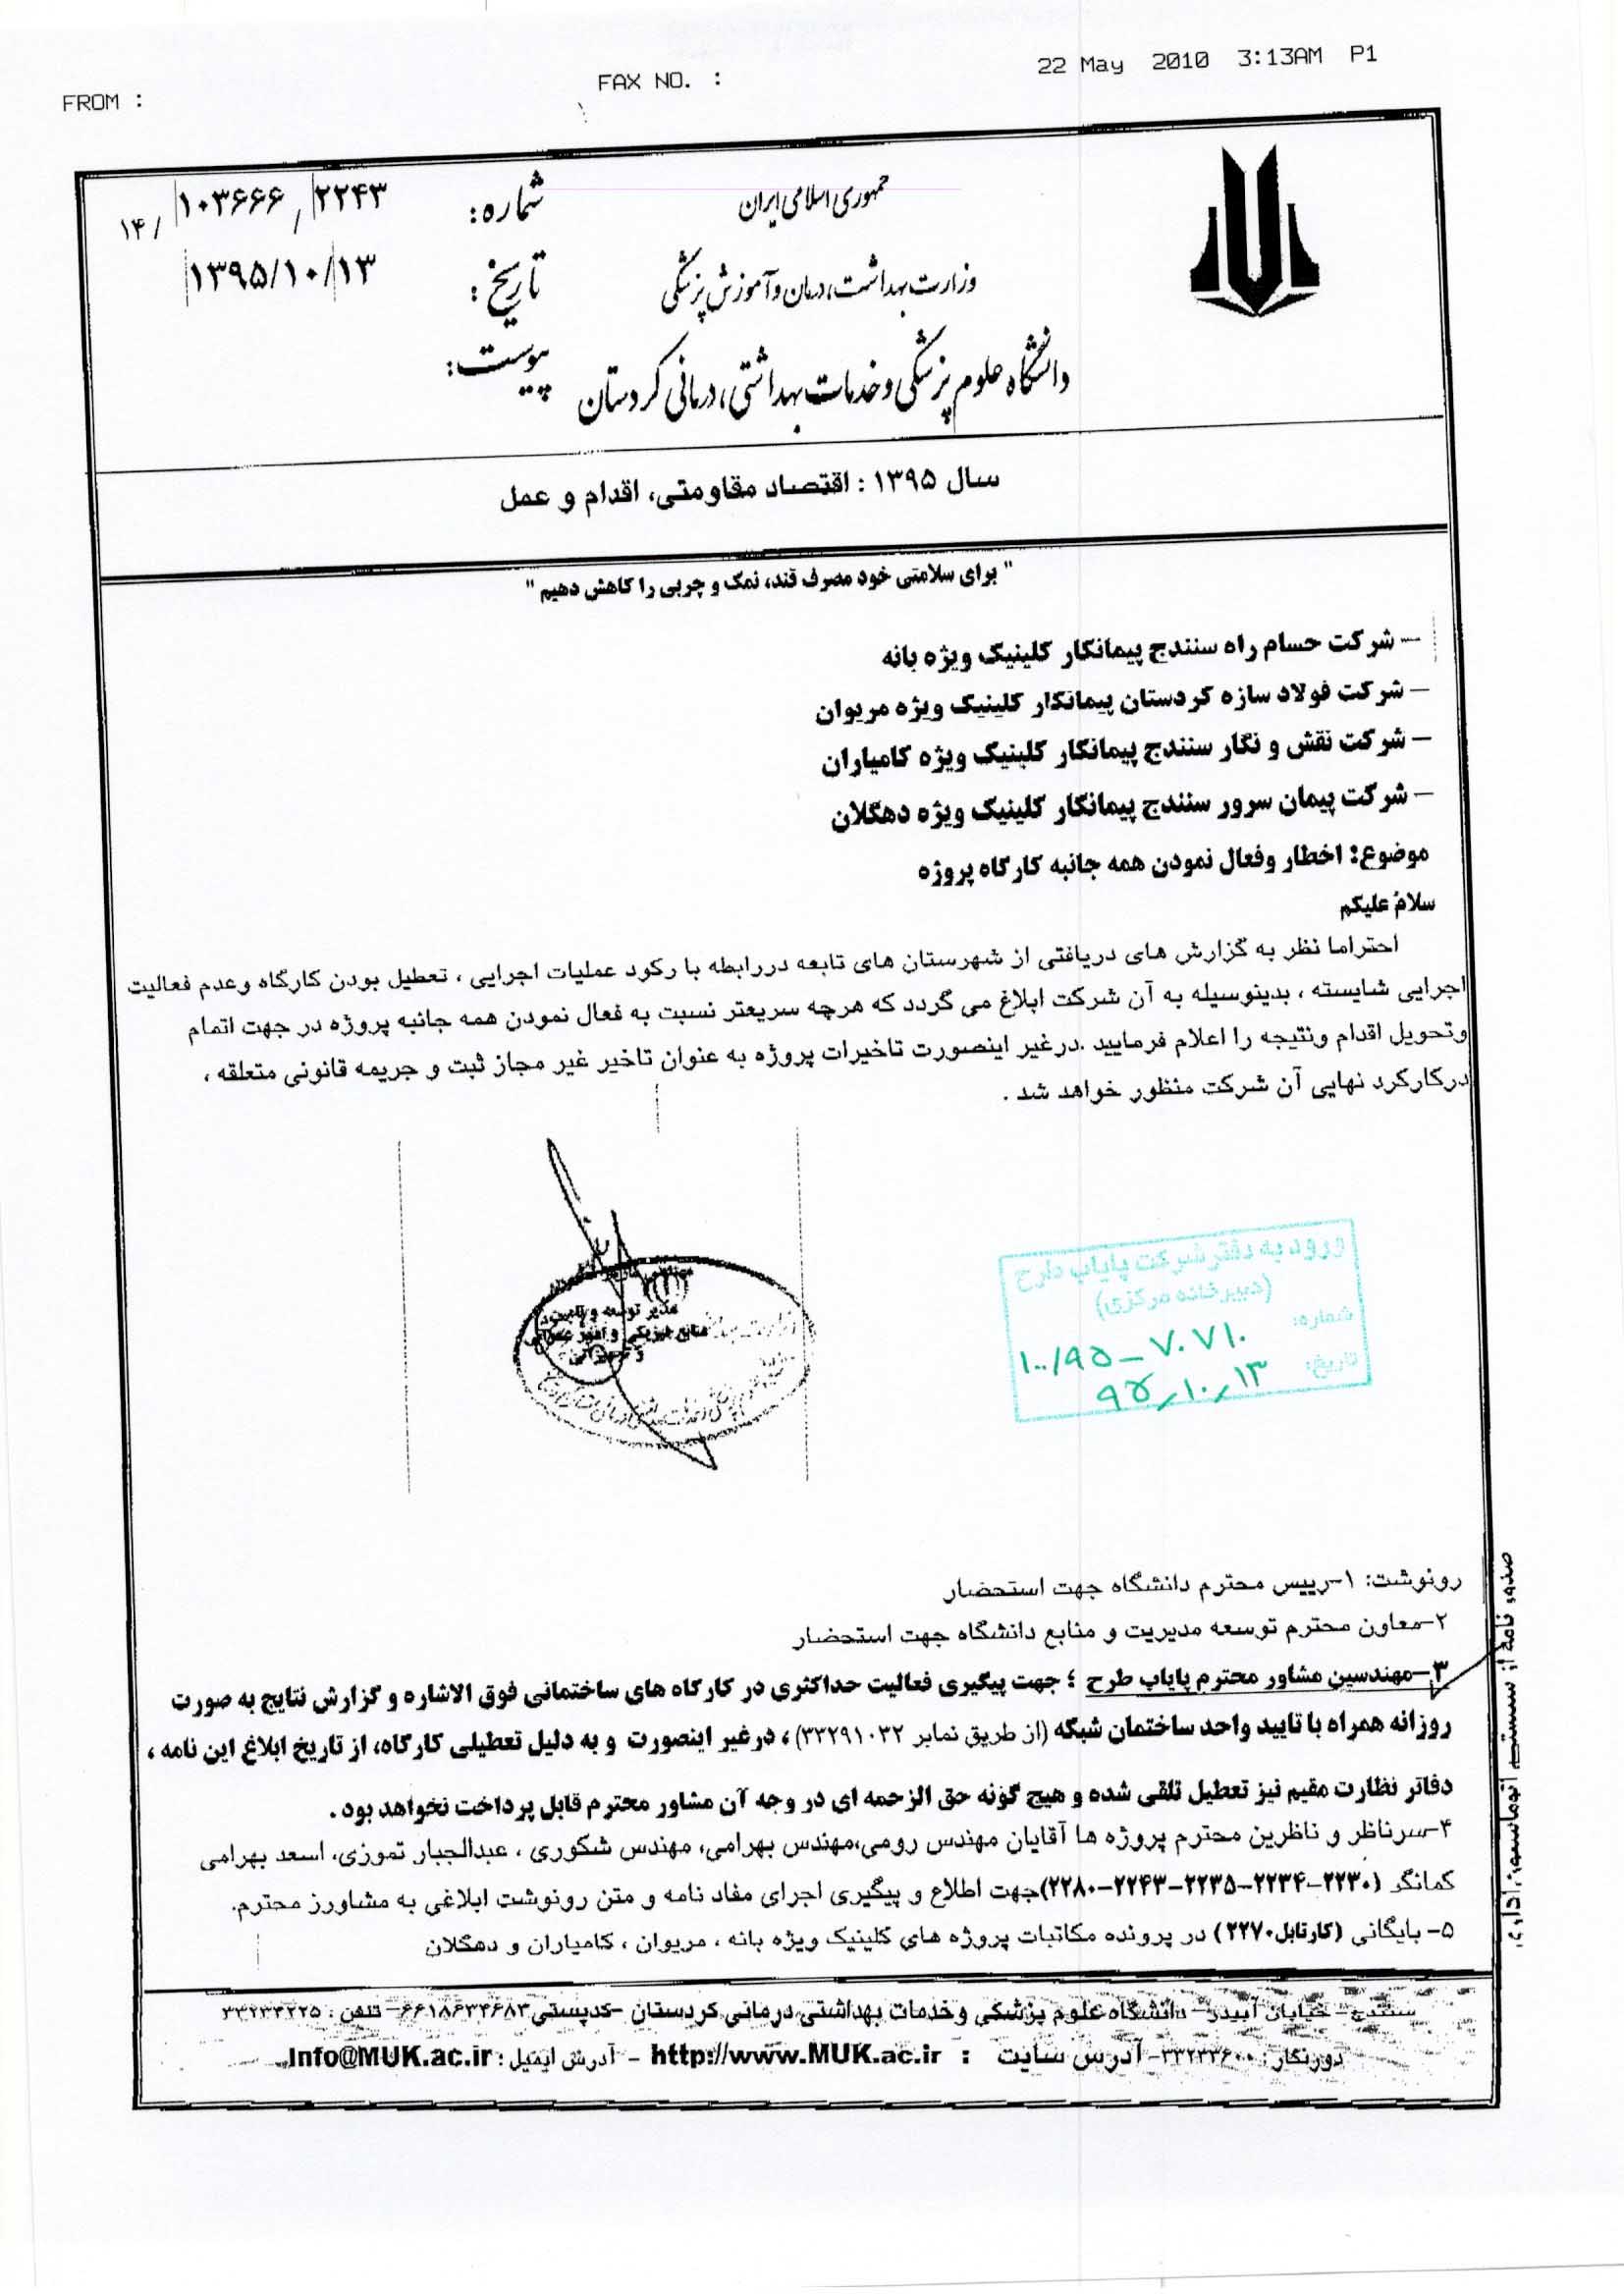 FROM :
FAX NO. :
22 May 2010 3:13AM P1
جمهوری اسلامی ایران
وزارت بهداشت، درمان و آموزش پزشکی
دانشگاه علوم پزشکی و خدمات بهداشتی، درمانی کردستان
شماره: ۱۴/۱۰۳۶۶۶/۲۲۴۳
تاریخ: ۱۳۹۵/۱۰/۱۳
پیوست:
سال ۱۳۹۵ : اقتصاد مقاومتی، اقدام و عمل
" برای سلامتی خود مصرف قند، نمک و چربی را کاهش دهیم "
– شرکت حسام راه سنندج پیمانکار کلینیک ویژه بانه
– شرکت فولاد سازه کردستان پیمانکار کلینیک ویژه مریوان
– شرکت نقش و نگار سنندج پیمانکار کلینیک ویژه کامیاران
– شرکت پیمان سرور سنندج پیمانکار کلینیک ویژه دهگلان
موضوع: اخطار وفعال نمودن همه جانبه کارگاه پروژه
سلام علیکم
احتراما نظر به گزارش های دریافتی از شهرستان های تابعه دررابطه با رکود عملیات اجرایی ، تعطیل بودن کارگاه وعدم فعالیت
اجرایی شایسته ، بدینوسیله به آن شرکت ابلاغ می گردد که هرچه سریعتر نسبت به فعال نمودن همه جانبه پروژه در جهت اتمام
وتحویل اقدام ونتیجه را اعلام فرمایید .درغیر اینصورت تاخیرات پروژه به عنوان تاخیر غیر مجاز ثبت و جریمه قانونی متعلقه ،
درکارکرد نهایی آن شرکت منظور خواهد شد .
مدیر توسعه و
منابع فیزیکی و امور عمرانی
ورود به دفتر شرکت پایاب طرح
(دبیرخانه مرکزی)
شماره: ۱۰۰/۹۵–۷۰۷۱۰
تاریخ: ۹۵/۱۰/۱۳
رونوشت: ۱–رییس محترم دانشگاه جهت استحضار
۲–معاون محترم توسعه مدیریت و منابع دانشگاه جهت استحضار
۳–مهندسین مشاور محترم پایاب طرح ؛ جهت پیگیری فعالیت حداکثری در کارگاه های ساختمانی فوق الاشاره و گزارش نتایج به صورت
روزانه همراه با تایید واحد ساختمان شبکه (از طریق نمابر ۳۳۲۹۱۰۳۲)، درغیر اینصورت و به دلیل تعطیلی کارگاه، از تاریخ ابلاغ این نامه ،
دفاتر نظارت مقیم نیز تعطیل تلقی شده و هیچ گونه حق الزحمه ای در وجه آن مشاور محترم قابل پرداخت نخواهد بود .
۴–سرناظر و ناظرین محترم پروژه ها آقایان مهندس رومی،مهندس بهرامی، مهندس شکوری ، عبدالجبار تموزی، اسعد بهرامی
کمانگر (۲۲۳۰–۲۲۳۴–۲۲۳۵–۲۲۴۳–۲۲۸۰)جهت اطلاع و پیگیری اجرای مفاد نامه و متن رونوشت ابلاغی به مشاورز محترم.
۵– بایگانی (کارتابل۲۲۷۰) در پرونده مکاتبات پروژه های کلینیک ویژه بانه ، مریوان ، کامیاران و دهگلان
صدور نامه از سیستم اتوماسیون اداری
سنندج– خیابان آبیدر– دانشگاه علوم پزشکی و خدمات بهداشتی درمانی کردستان –کدپستی ۶۶۱۸۶۳۴۶۸۳– تلفن : ۳۳۲۳۴۲۲۵
دورنگار : ۳۳۲۳۳۶۰۰– آدرس سایت : http://www.MUK.ac.ir – آدرس ایمیل : Info@MUK.ac.ir